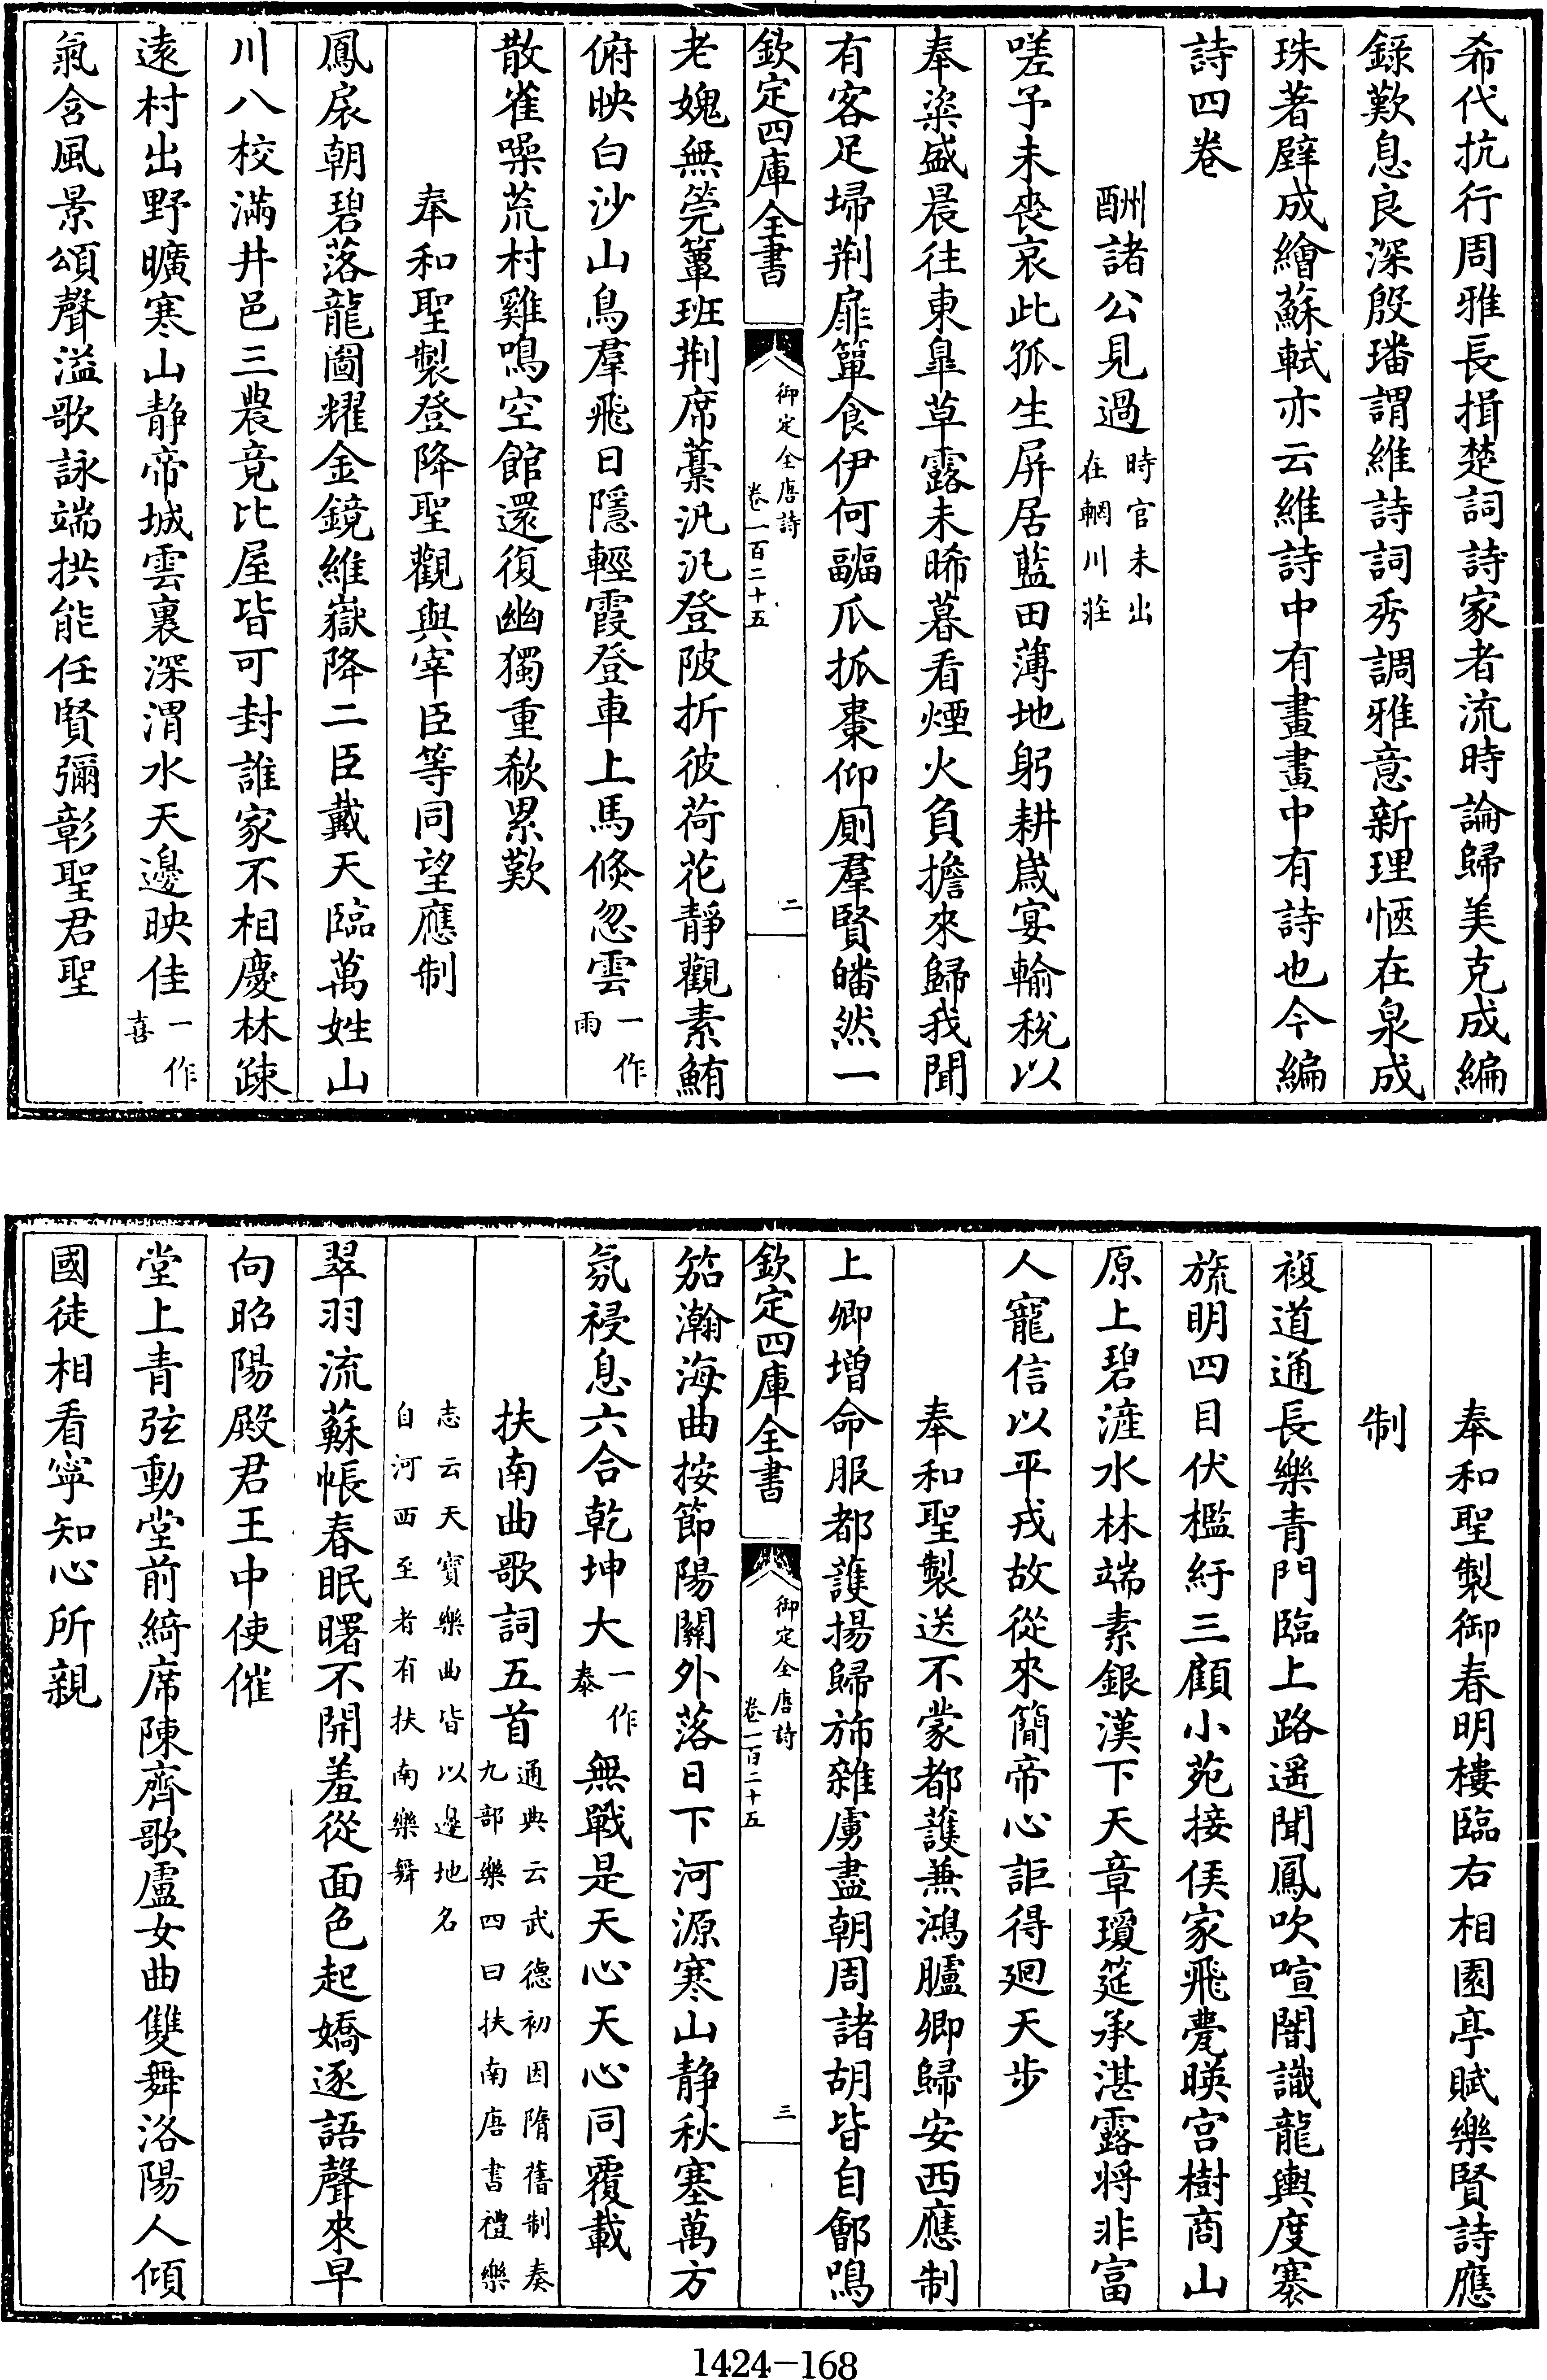 希代抗行周雅長揖楚詞詩家者流時論歸美克成編
錄歎息良深殷璠謂維詩詞秀調雅意新理愜在泉成
珠著壁成繪蘇軾亦云維詩中有畫畫中有詩也今編
詩四卷
酬諸公見過時官未出在輞川莊
嗟予未喪哀此孤生屏居藍田薄地躬耕歲宴輸稅以
奉粢盛晨往東皐草露未晞暮看煙火負擔來歸我聞
有客足埽荆扉簞食伊何疈瓜抓棗仰厠羣賢皤然一
欽定四庫全書
御定全唐詩
卷一百二十五
二
老媿無莞簟班荆席藁汎汎登陂折彼荷花靜觀素鮪
俯映白沙山鳥羣飛日隱輕霞登車上馬倏忽雲一作雨
散雀噪荒村雞鳴空館還復幽獨重欷累歎
奉和聖製登降聖觀與宰臣等同望應制
鳳扆朝碧落龍圖耀金鏡維嶽降二臣戴天臨萬姓山
川八校滿井邑三農竟比屋皆可封誰家不相慶林疎
遠村出野曠寒山静帝城雲裏深渭水天邊映佳一作喜
氣含風景頌聲溢歌詠端拱能任賢彌彰聖君聖
奉和聖製御春明樓臨右相園亭賦樂賢詩應
制
複道通長樂青門臨上路遥聞鳳吹喧闇識龍輿度褰
旒明四目伏檻紆三顧小苑接侯家飛甍暎宮樹商山
原上碧滻水林端素銀漢下天章瓊筵承湛露將非富
人寵信以平戎故從來簡帝心詎得廻天步
奉和聖製送不蒙都護兼鴻臚卿歸安西應制
上卿增命服都護揚歸斾雜虜盡朝周諸胡皆自鄶鳴
欽定四庫全書
御定全唐詩
卷一百二十五
三
笳瀚海曲按節陽關外落日下河源寒山静秋塞萬方
氛祲息六合乾坤大一作泰無戰是天心天心同覆載
扶南曲歌詞五首通典云武德初因隋舊制奏九部樂四曰扶南唐書禮樂
志云天寶樂曲皆以邊地名自河西至者有扶南樂舞
翠羽流蘇帳春眠曙不開羞從面色起嬌逐語聲來早
向昭陽殿君王中使催
堂上青弦動堂前綺席陳齊歌盧女曲雙舞洛陽人傾
國徒相看寧知心所親
1424-168